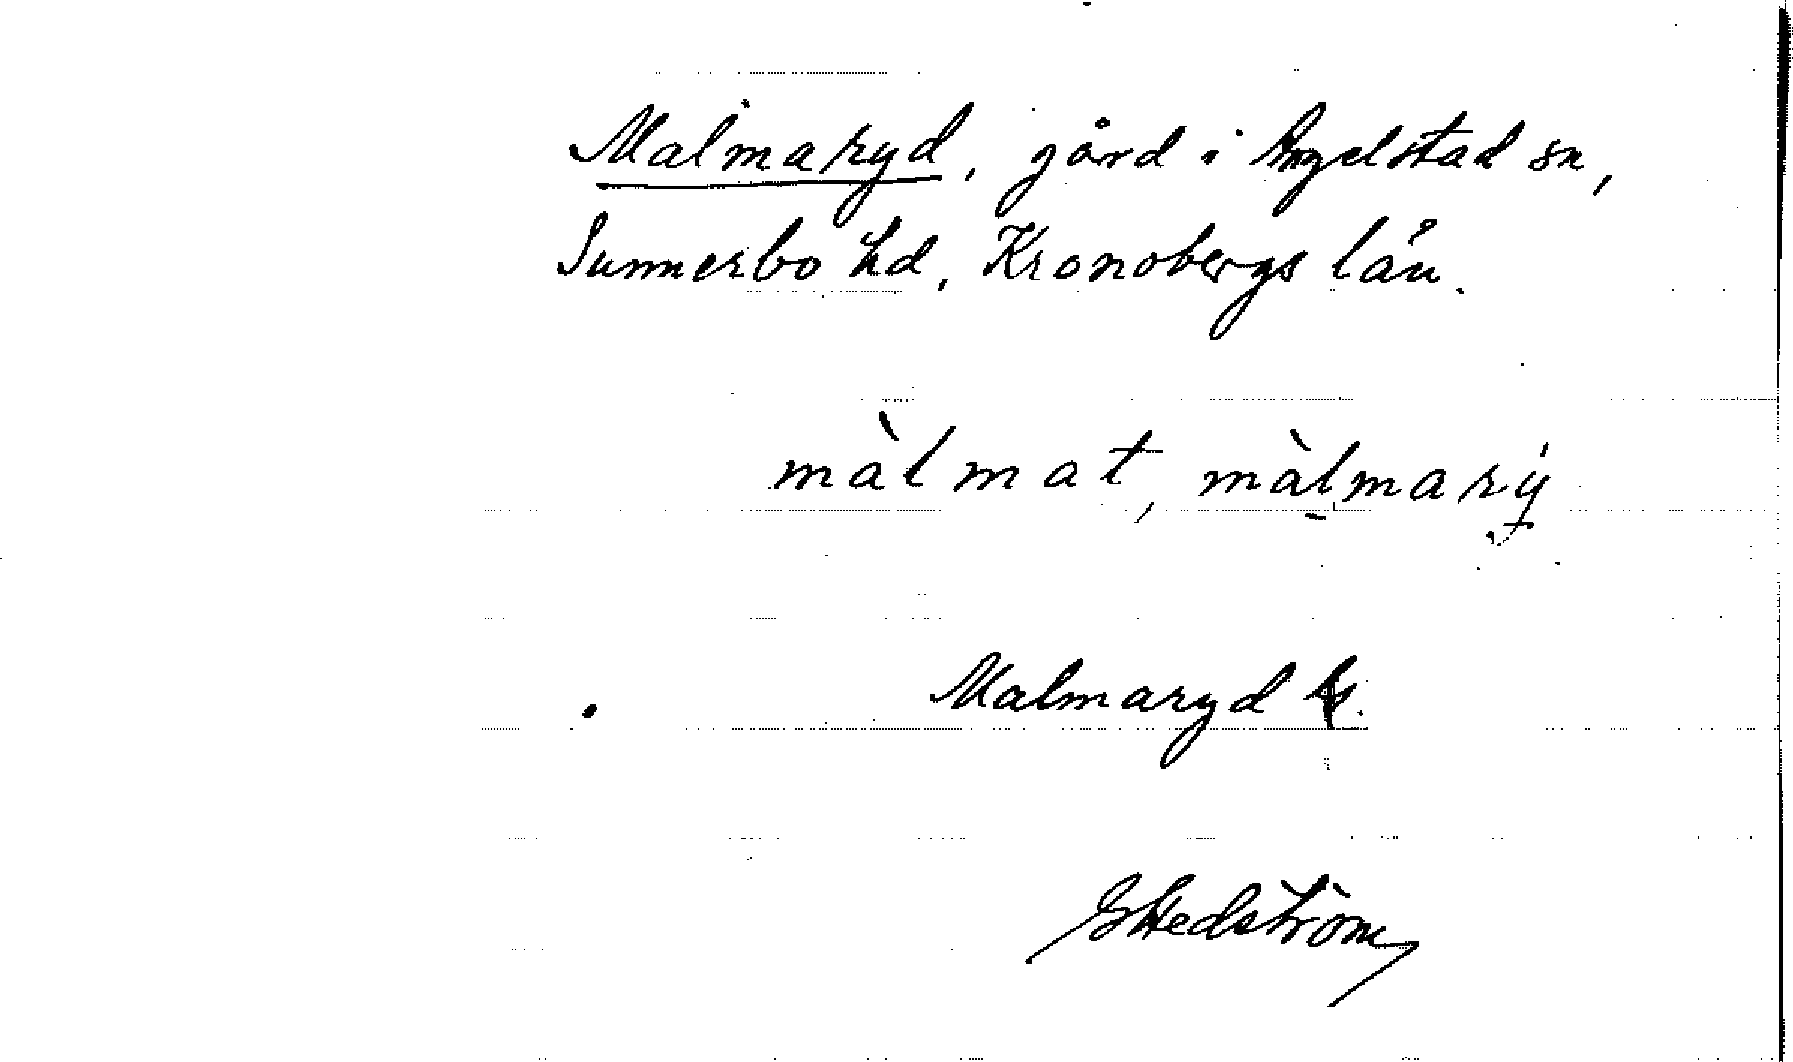 Malmaryd, gård i Angelstad sn,
Sunnerbo hd, Kronobergs län.
màlmat, màlmarý
Malmaryd
GHedström